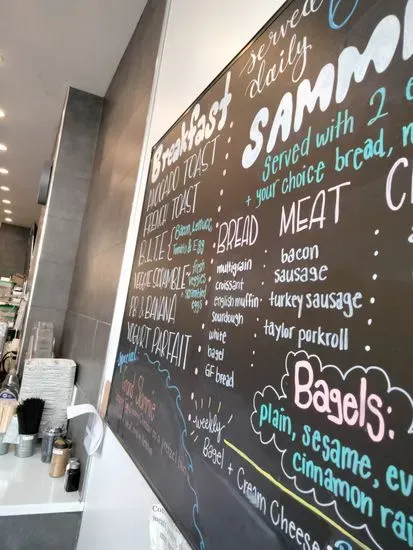 Breakfast
AVOCADO TOAST
FRENCH TOAST
B.L.T.E'S Bacon, Lettuce,
Tomato & Egg
VEGGIE SCRAMBLE - fresh
veggies
+ scrambled
eggs
PB & BANANA
YOGURT PARFAIT
Special:
served
daily
SAMM
Served with 2 e
+ your choice bread,
BREAD
multigrain
croissant
english muffin
sourdough
white
bagel
GF bread
MEAT
bacon
sausage
turkey sausage
taylor porkroll
C
Bagels:
plain, sesame, ev
cinnamon rai
weekly
Bagel + Cream Cheese